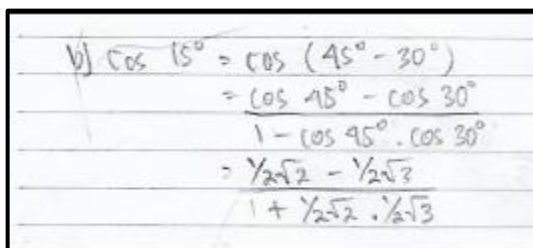 b) Cos 15° = cos (45° - 30°)
= cos 45° - cos 30°
1 - cos 45° . cos 30°
= 1/2√2 - 1/2√3
1 + 1/2√2 . 1/2√3